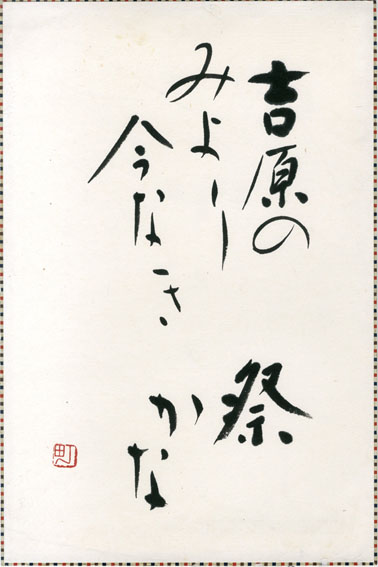 吉原の
みよし
今なき
祭
かな
町